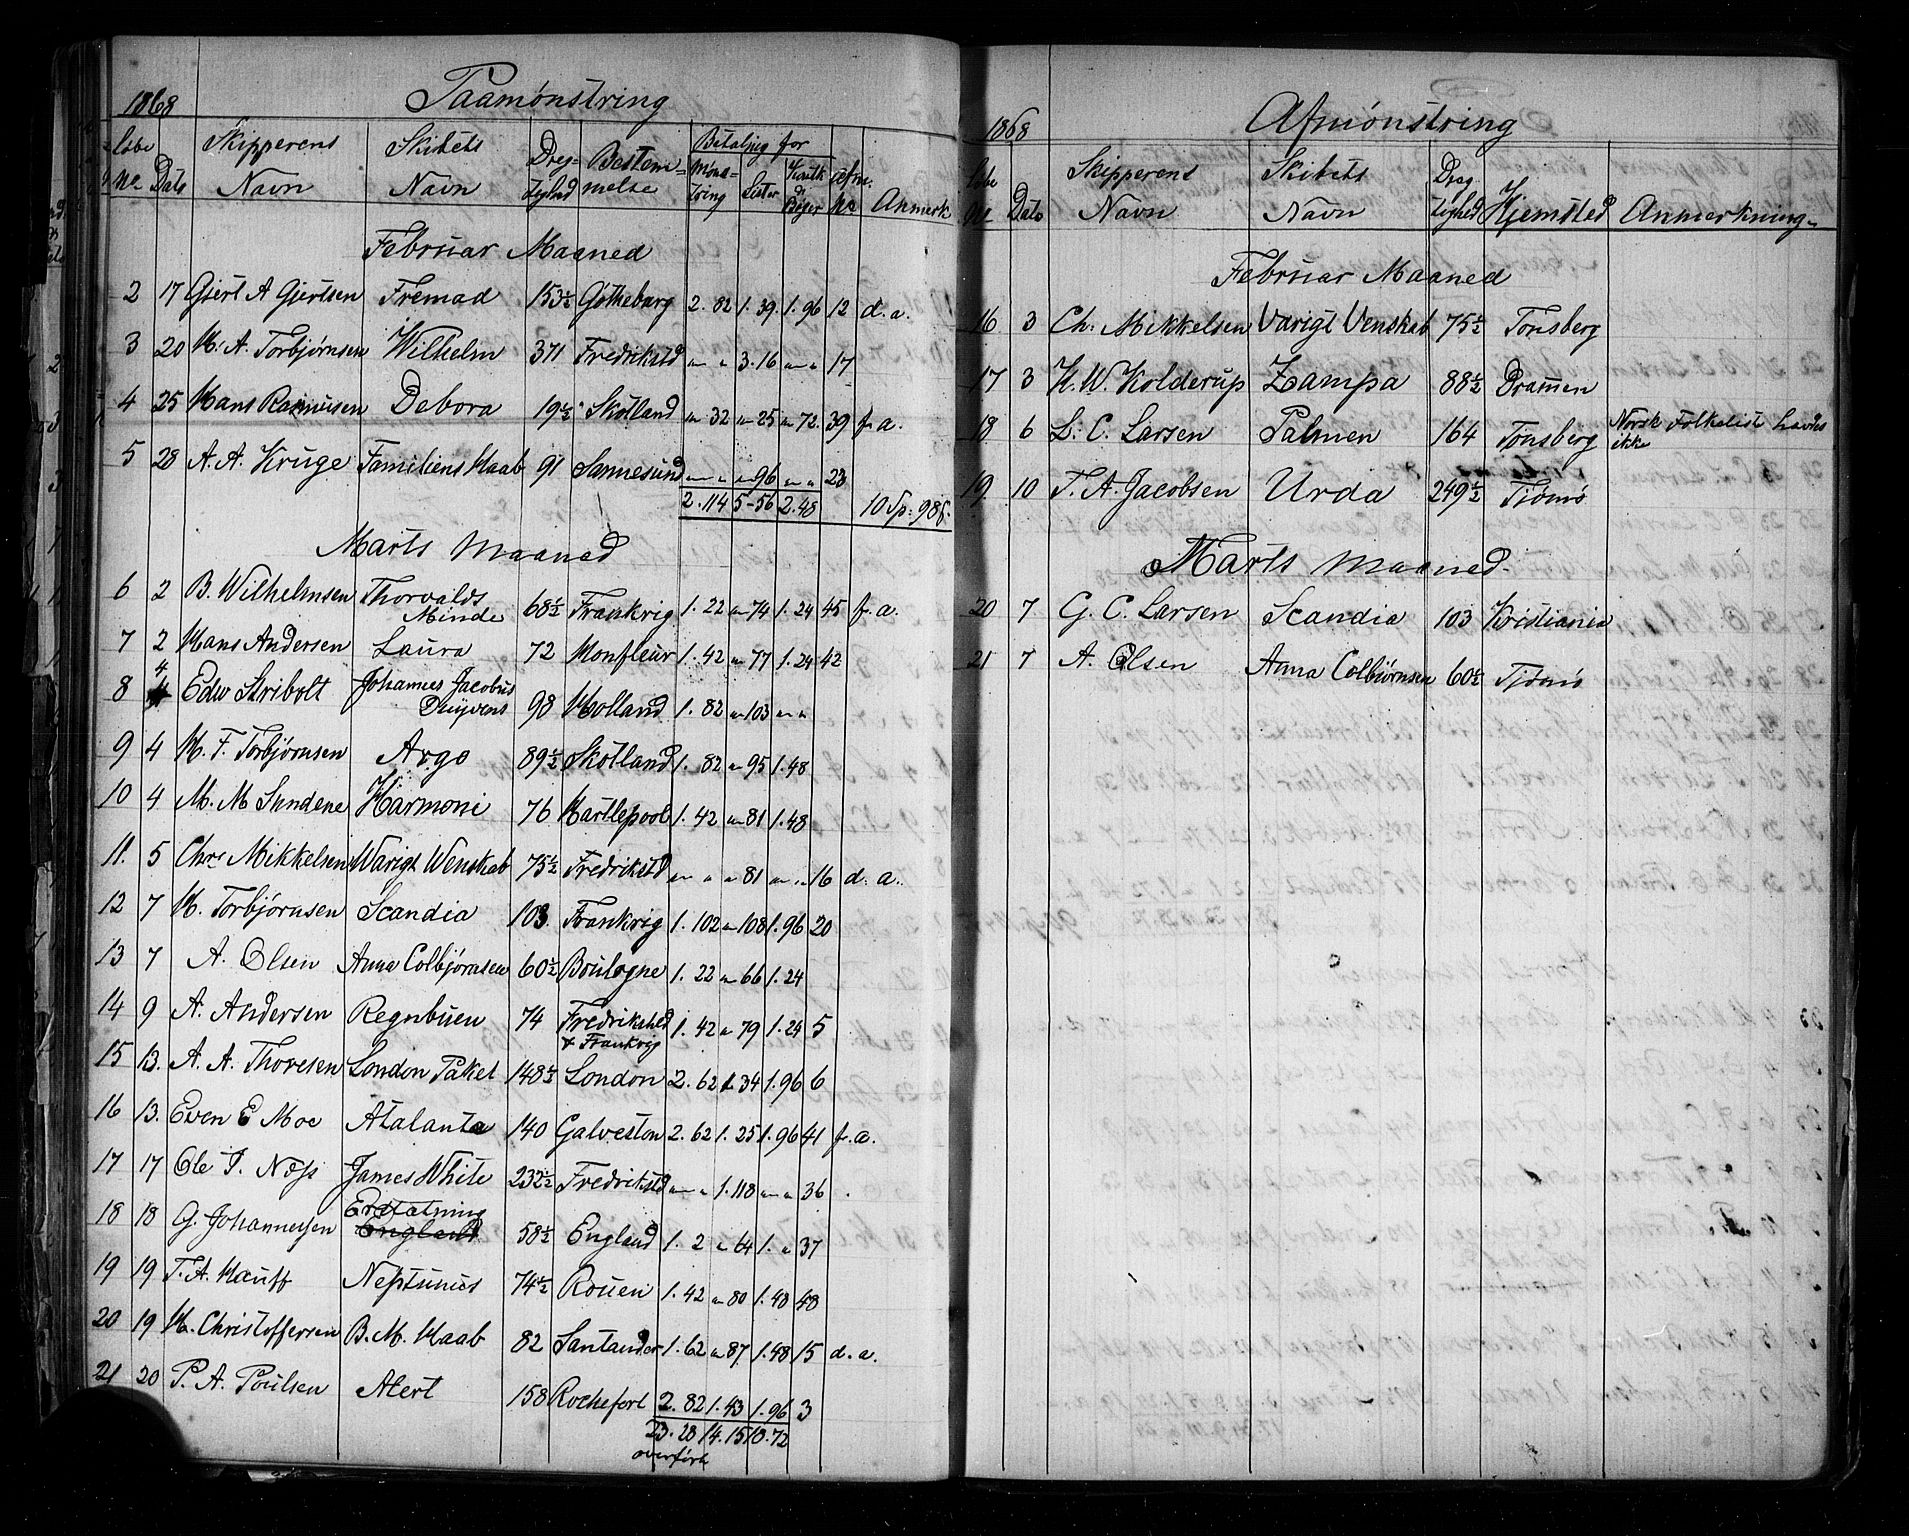 1868 Paamønstring
Løbe No Dato Skipperens Navn Skibets Navn Dræg-tighed Bestem-melse Betaling for Møns-tring Lister Kontk Bøger No Anmerk
Februar Maaned
2 17 Gjert A Gjertsen Fremad 153½ Gøtheborg 2. 82 1. 39. 1. 96 12 d. a.
3 20 H. A. Torbjørnsen Wilhelm 371 Fredrikstd " " 3. 16 " " 17
4 25 Hans Rasmusen Debora 19½ Skotland " 32 " 25 " 72. 39 f. a.
5 28 A. A. Kruge Familiens Haab 91 Sannesund " " " 96 " " 23
2. 114 5-56 2. 48 10 Sp: 98 ʃ.
Marts Maaned
6 2 B. Wilhelmsen Thorvalds Minde 68½ Frankrig 1. 22 " 74 1. 24 45 f. a.
7 2 Hans Andersen Laura 72 Honfleur 1. 42 " 77 1. 24 42
8 4 Edw Skribolt Johannes Jacobus Duyvens 98 Holland 1. 82 " 103 " "
9 4 H. F. Torbjørnsen Argo 89½ Skotland 1. 82 " 95 1. 48
10 4 M. M Sundene Harmoni 76 Hartlepool 1. 42 " 81 1. 48
11. 5 Chr. Mikkelsen Varigt Venskab 75½ Fredrikstd " " " 81 " " 16 d. a.
12 7 H. Torbjørnsen Scandia 103 Frankrig 1. 102 " 108 1. 96 20
13 7 A. Olsen Anna Colbjørnsen 60½ Boulogne 1. 22 " 66 1. 24
14 9 A. Andersen Regnbuen 74 Fredrikshd & Frankrig 1. 42 " 79 1. 24 5
15 13. A. A. Thoresen London Paket 148½ London 2. 62 1. 34 1. 96 6
16 13. Even E Moe Atalanta 140 Galveston 2. 62 1. 25 1. 96 41 f. a.
17 17 Ole T. Næss James White 232½ Fredrikstd " " 1. 118 " " 36
18 18 G. Johannessen Erstatning England 58½ England 1. 2 " 64 1. " 37
19 19 T. A. Hauff Neptunus 74½ Rouen 1. 42 " 80 1. 48 48
20 19 H. Christoffersen B. M. Haab 82 Santander 1. 62 " 87 1. 48 15 d. a.
21 20 P. A. Poulsen Alert 158 Rochefort 2. 82 1. 43 1. 96 3
23. 28 14. 15 10. 72
overført
1868 Afmønstring
Løbe No Dato Skipperens Navn Skibets Navn Dræg-tighed Hjemsted Anmerkning
Februar Maaned
16 3 Ch. Mikkelsen Varigt Venskab 75½ Tønsberg
17 3 H. W. Kolderup Zampa 88½ Dramen
18 6 L. C. Larsen Palmen 164 Tønsberg Norsk Folkeliste havdes ikke
19. 10 T. A. Jacobsen Urda 249½ Tjømø
Marts Maaned.
20 7 G. C. Larsen Scandia 103 Kristiania
21 7 A. Olsen Anna Colbjørnsen 60½ Tjømø